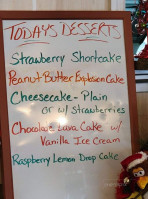 TODAY'S DESSERTS
Strawberry Shortcake
Peanut Butter Explosion Cake
Cheesecake - Plain
OR w/ strawberries
Chocolate Lava Cake w/
Vanilla Ice Cream
Raspberry Lemon Drop Cake